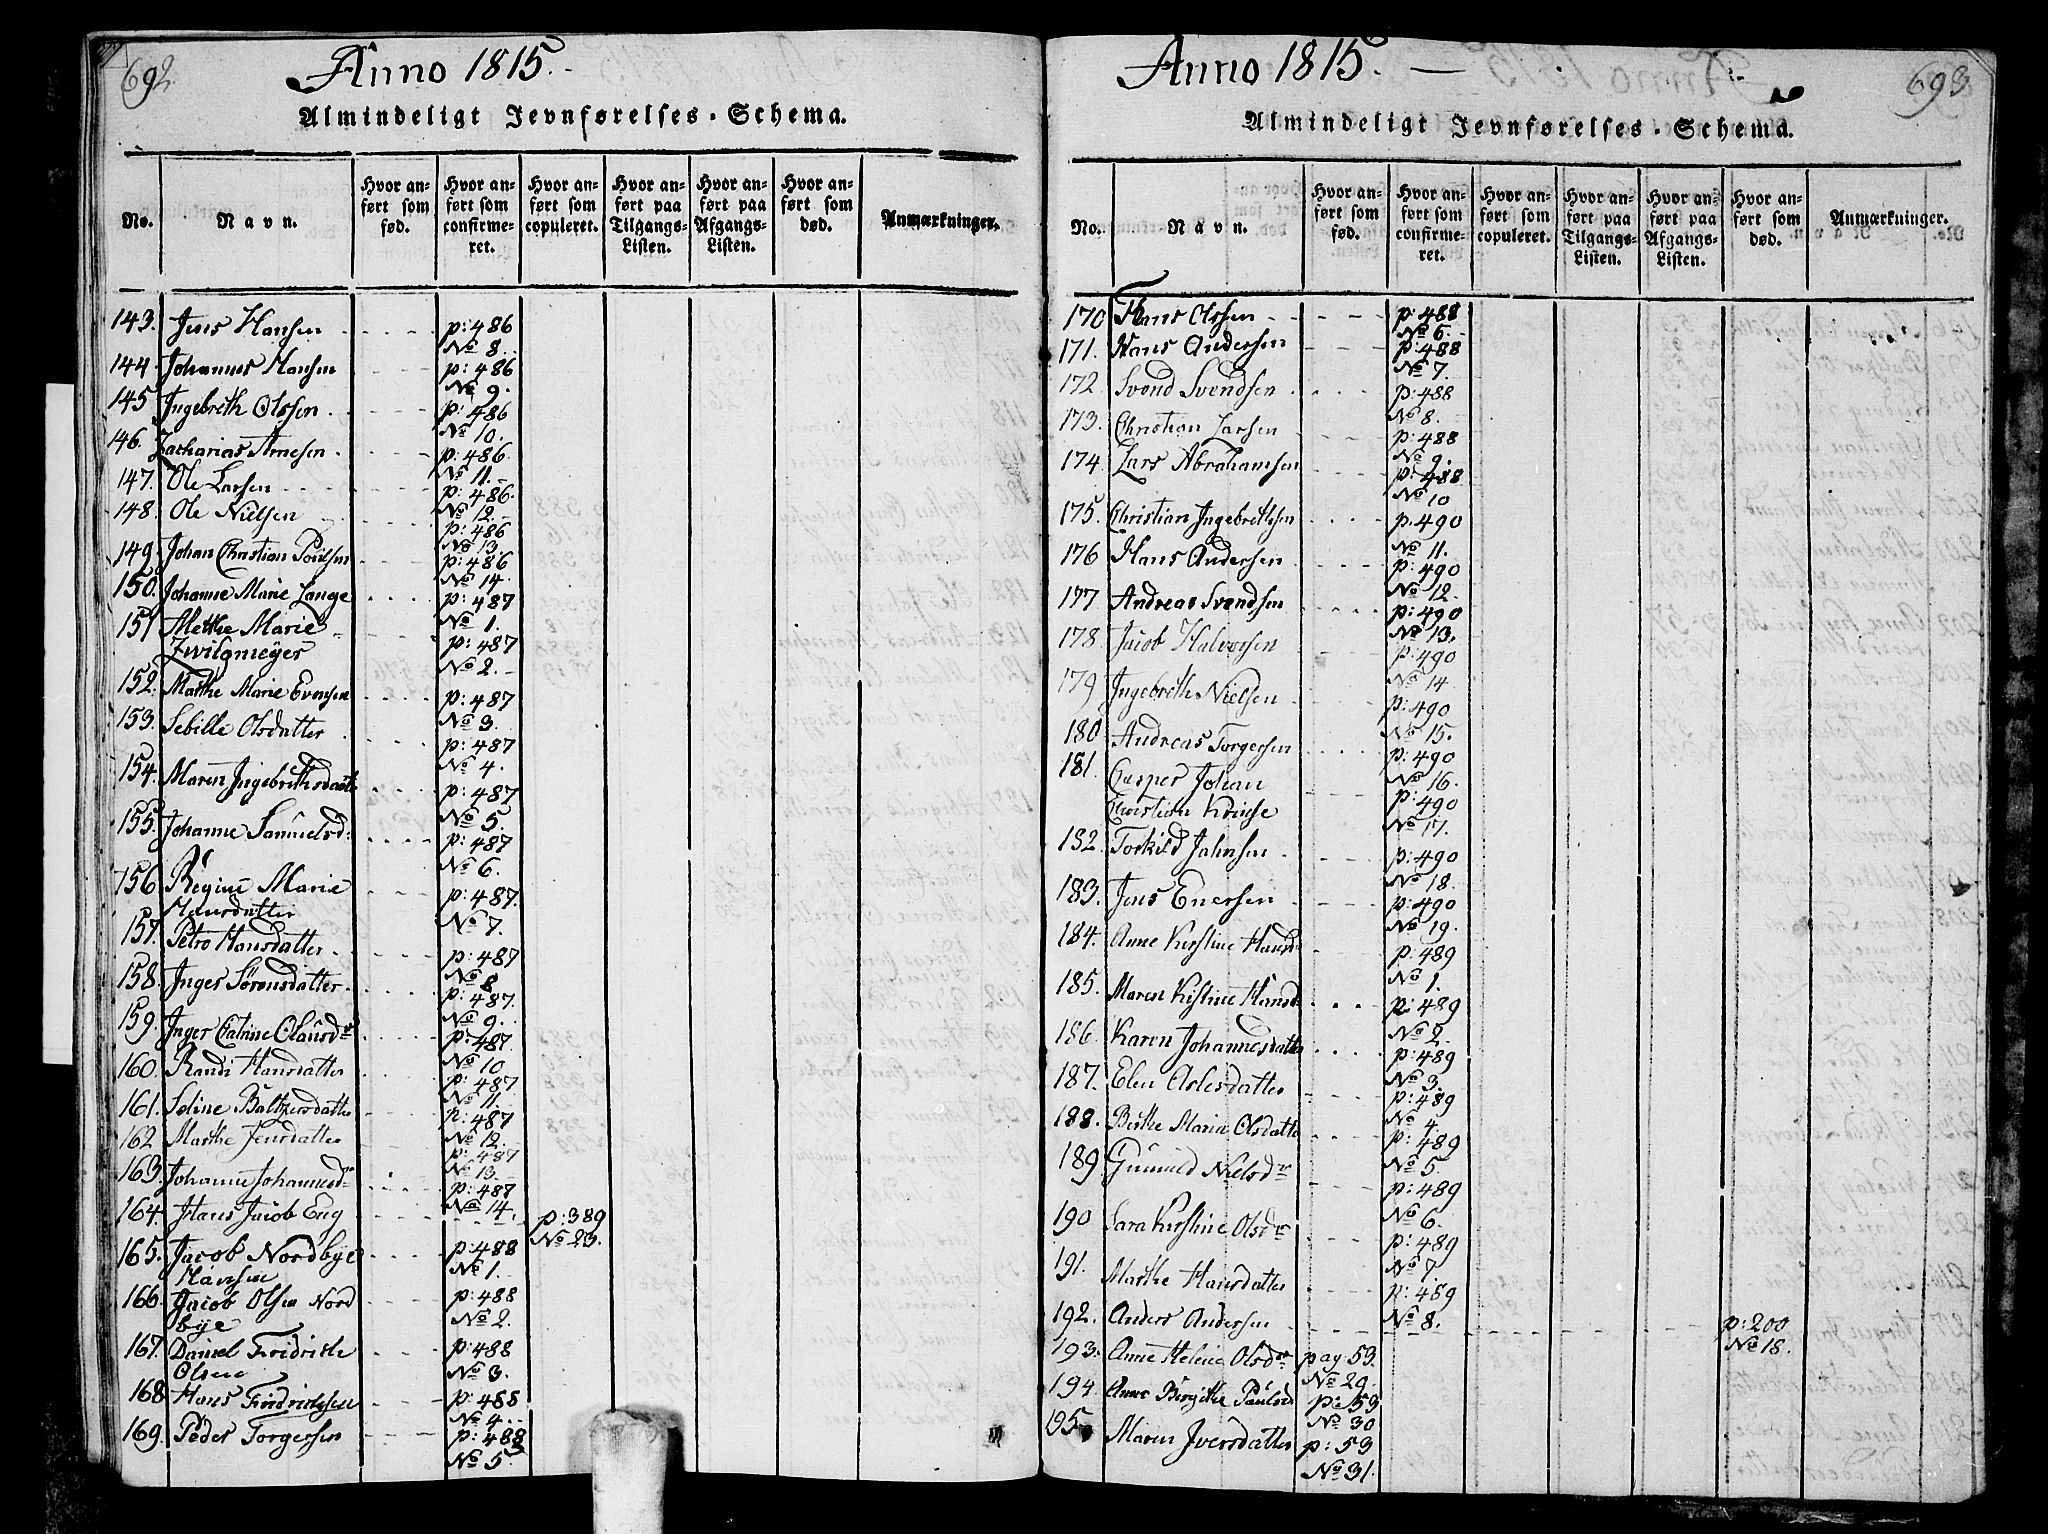 692
Anno 1815.
Almindeligt Jevnførelses-Schema.
No.
Navn.
Hvor anført som fød.
Hvor anført som confirmeret.
Hvor anført som copuleret.
Hvor anført paa Tilgangs-Listen.
Hvor anført paa Afgangs-Listen.
Hvor anført som død.
Anmærkninger.
143. Jens Hansen p: 486
No 8.
144. Johannes Hansen p: 486
No 9.
145 Ingebreth Olssen p: 486
No 10.
146. Zacharias Arnesen p: 486
No 11.
147. Ole Larsen p: 486.
No 12.
148. Ole Nielsen p: 486
No 13.
149. Johan Christian Poulsen p: 486
No 14.
150. Johanne Marie Lange p: 487
No 1.
151 Methe Marie
Zwilgmeyer p: 487
No 2.
152. Marthe Marie Evensen p: 487
No 3.
153. Sebille Olsdatter p: 487
No 4.
154. Maren Ingebrethsdatt p: 487
No 5.
155. Johanne Samuelsd: p: 487
No 6.
156 Regine Marie
Hansdatter p: 487.
No 7.
157. Petro Hansdatter p: 487
No 8
158. Inger Sörensdatter p: 487.
No 9.
159. Inger Catrine Clausdr p: 487.
No 10
160. Randi Hansdatter p: 487
No 11.
161. Seline Baltzersdatter p: 487
No 12.
162 Marthe Jensdatter p: 487
No 13.
163. Johanne Johannesdr p: 487
No 14.
164. Hans Jacob Eng p: 389
No 23.
165. Jacob Nordbye
Hansen p: 488
No 1.
166. Jacob Olsen Nord
bye p: 488
No 2.
167. Daniel Fridrich
Olsen p: 488
No 3.
168 Hans Fridrichsen p: 488
No 4.
169. Peder Torgersen p: 488
No 5.
693
Anno 1815.
Almindeligt Jevnførelses-Schema.
No.
Navn.
Hvor anført som fød.
Hvor anført som confirmeret.
Hvor anført som copuleret.
Hvor anført paa Tilgangs-Listen.
Hvor anført paa Afgangs-Listen.
Hvor anført som død.
Anmærkninger.
170 Hans Olssen p: 488
No 6.
171. Hans Andersen p: 488
No 7.
172 Svend Svendsen p: 488
No 8.
173. Christian Larsen p: 488
No 9.
174 Lars Abrahamsen p: 488
No 10
175. Christian Ingebrethsen p. 490
No 11.
176 Hans Andersen p: 490
No 12.
177 Andreas Svendsen p: 490
No 13.
178. Jacob Halvorsen p: 490
No 14
179 Ingebreth Nielsen p: 490
No 15.
180 Andreas Torgersen p: 490
No 16.
181. Casper Johan
Christian Kruse p: 490
No 17.
182. Torkild Jahnsen p: 490
No 18.
183. Jens Enersen p: 490
No 19.
184. Anne Kirstine Hansd p: 489
No 1.
185. Maren Kistine Hansd p: 489
No 2.
186. Karen Johannesdatter p: 489
No 3.
187. Elen Aslesdatter p: 489
No 4.
188. Birthe Maria Olsdatte p: 489
No 5.
189 Gunnild Nielsdr p: 489
No 6.
190 Sara Kirstine Olsdr p: 489
No 7
191. Marthe Hansdatter p: 489
No 8.
192. Anders Andersen p: 200
No 18.
193. Anne Helene Olsdr pag: 53.
No 29.
194. Anne Birgithe Paulsd p: 53
No 30
195. Maren Iversdatter p: 53
No 31.